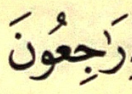 رَٰجِعُونَ